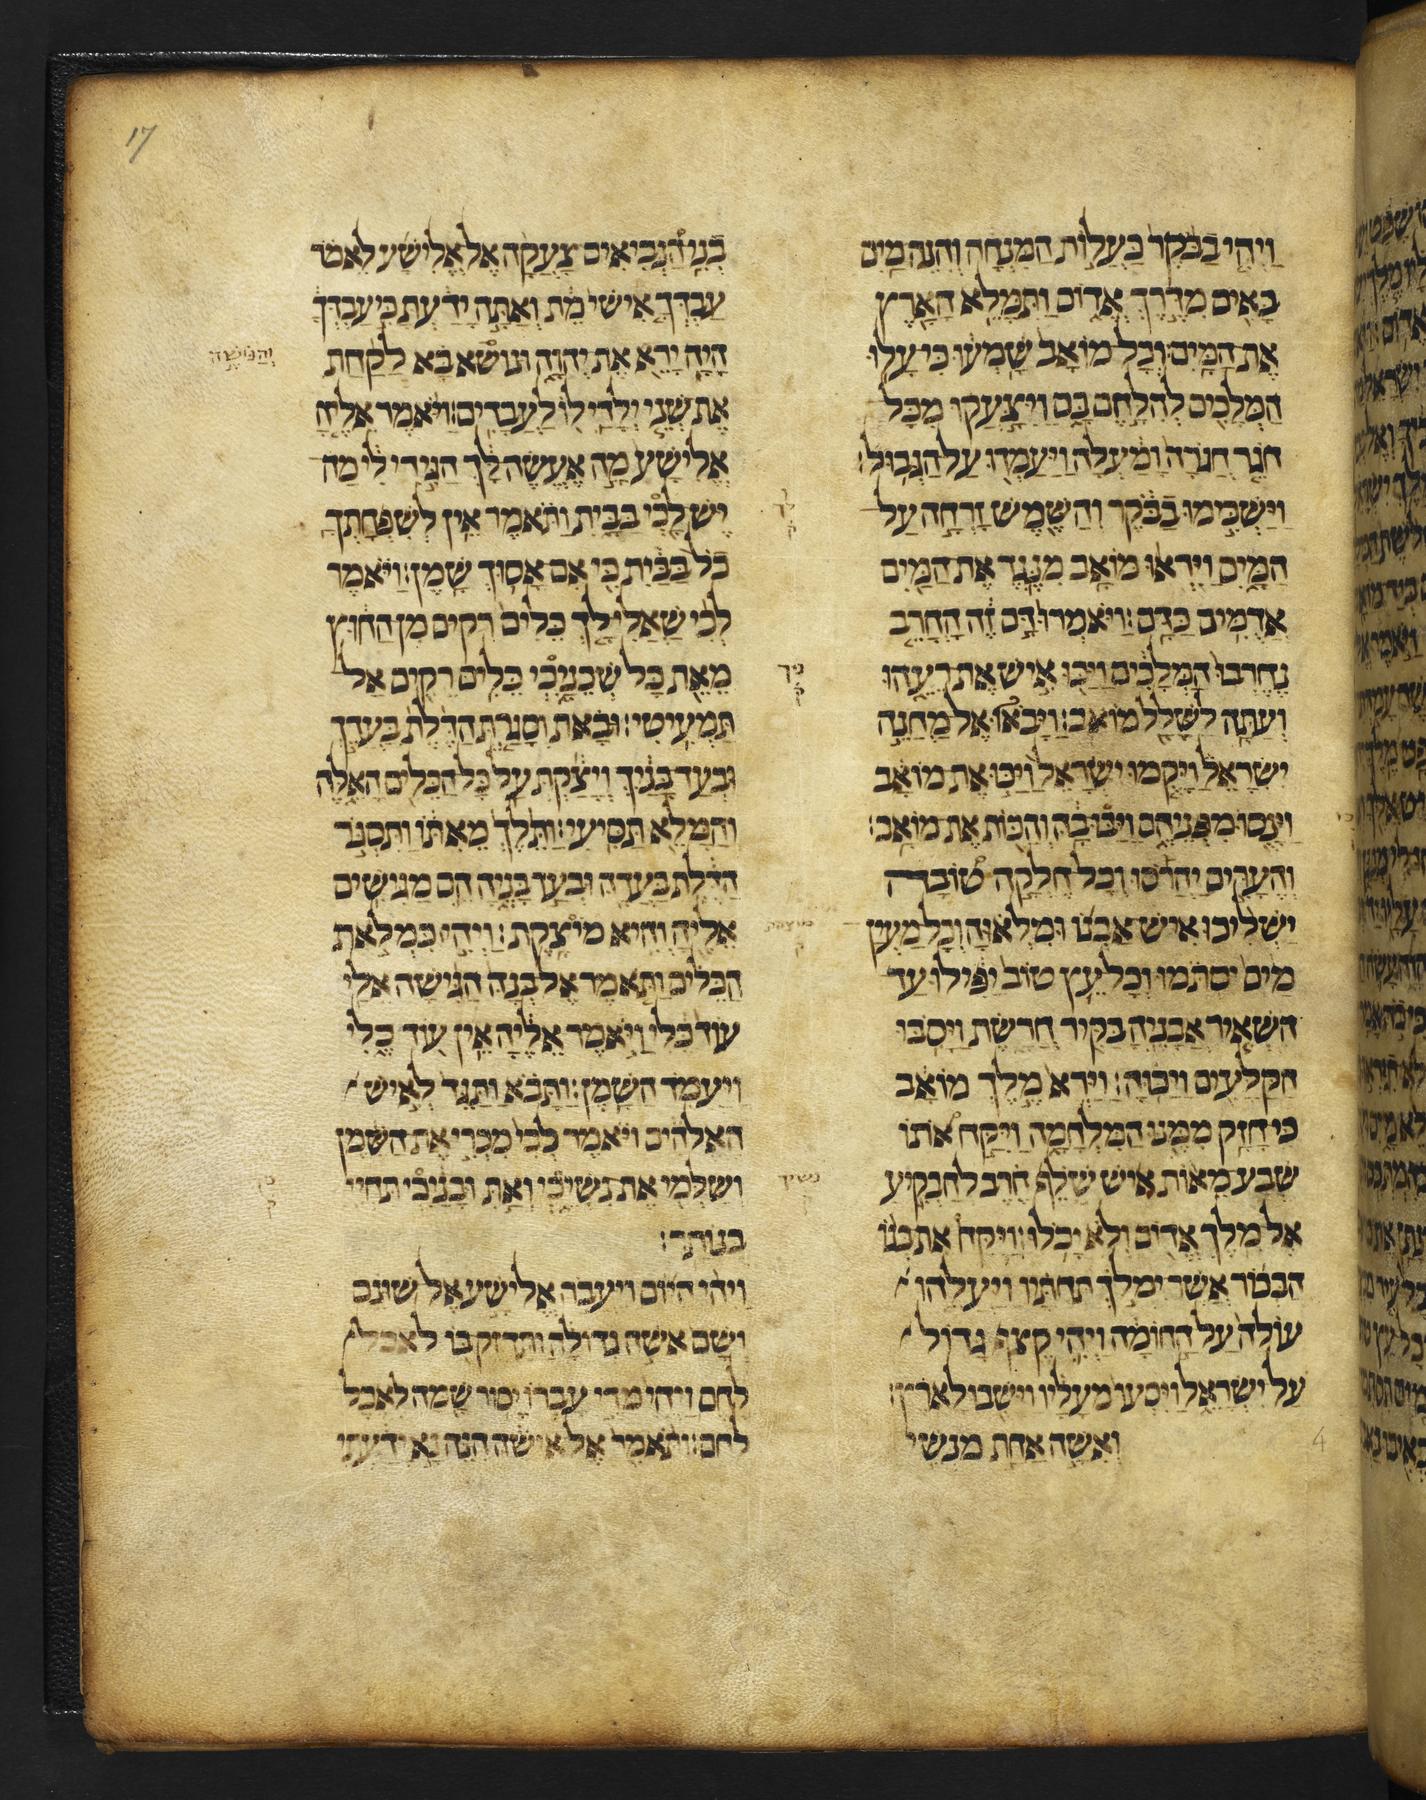 ויהי בבקר כעלות המנחה והנה מים
באים מדרך אדום ותמלא הארץ
את המים וכל מואב שמעו כי עלו
המלכים להלחם בם ויצעקו מכל
חגר חגרה ומעלה ויעמדו על הגבול׃
וישכימו בבקר והשמש זרחה על
המים ויראו מואב מנגד את המים
אדמים כדם׃ ויאמרו דם זה החרב
נחרבו המלכים ויכו איש את רעהו
ועתה לשלל מואב׃ ויבאו אל מחנה
ישראל ויקמו ישראל ויכו את מואב
וינסו מפניהם ויבו בה והכות את מואב׃
והערים יהרסו וכל חלקה טובה
ישליכו איש אבנו ומלאוה וכל מעין
מים יסתמו וכל עץ טוב יפילו עד
השאיר אבניה בקיר חרשת ויסבו
הקלעים ויכוה׃ וירא מלך מואב
כי חזק ממנו המלחמה ויקח אתו
שבע מאות איש שלף חרב להבקיע
אל מלך אדום ולא יכלו׃ ויקח את בנו
הבכור אשר ימלך תחתיו ויעלהו
עולה על החומה ויהי קצף גדול
על ישראל ויסעו מעליו וישבו לארץ׃
ואשה אחת מנשי
בני הנביאים צעקה אל אלישע לאמר
עבדך אישי מת ואתה ידעת כי עבדך
היה ירא את יהוה והנושא בא לקחת
את שני ילדי לו לעבדים׃ ויאמר אליה
אלישע מה אעשה לך הגידי לי מה
יש לכי בבית ותאמר אין לשפחתך
כל בבית כי אם אסוך שמן׃ ויאמר
לכי שאלי לך כלים רקים מן החוץ
מאת כל שכניכי כלים רקים אל
תמעיטי׃ ובאת וסגרת הדלת בעדך
ובעד בניך ויצקת על כל הכלים האלה
והמלא תסיעי׃ ותלך מאתו ותסגר
הדלת בעדה ובעד בניה הם מגישים
אליה והיא מוצקת׃ ויהי כמלאת
הכלים ותאמר אל בנה הגישה אלי
עוד כלי ויאמר אליה אין עוד כלי
ויעמד השמן׃ ותבא ותגד לאיש
האלהים ויאמר לכי מכרי את השמן
ושלמי את נשיכי ואת ובניכי תחיי
בנותר׃
ויהי היום ויעבר אלישע אל שונם
ושם אשה גדולה ותחזק בו לאכל
לחם ויהי מדי עברו יסור שמה לאכל
לחם׃ ותאמר אל אישה הנה נא ידעתי
17
4